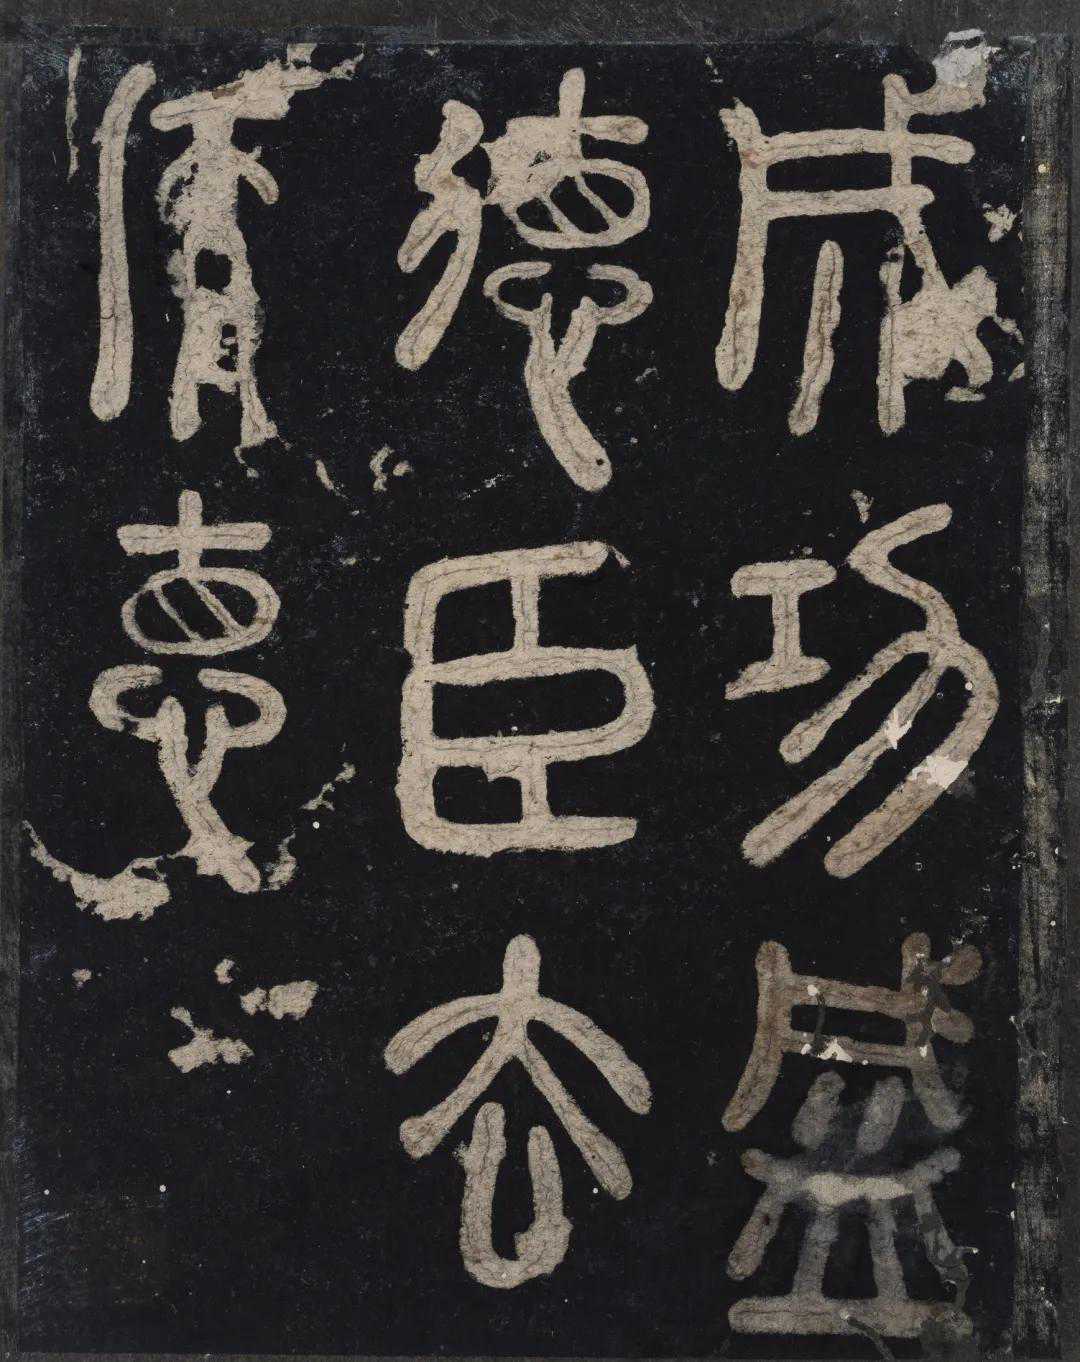 成功盛
德臣去
惪